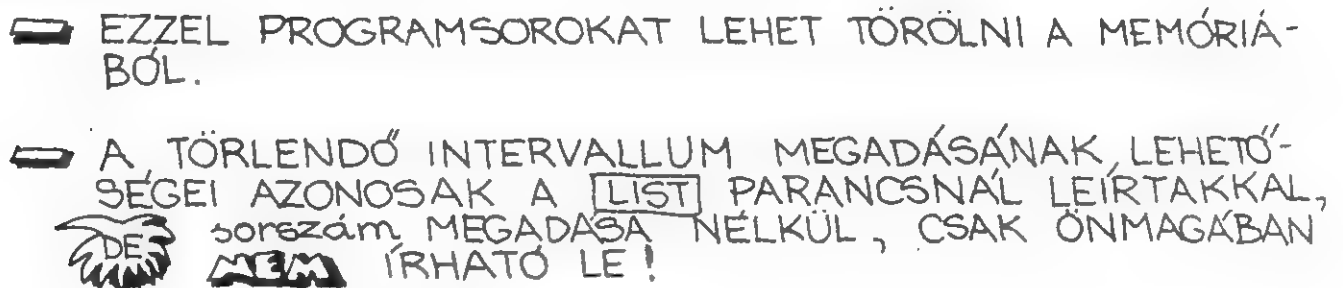 EZZEL PROGRAMSOROKAT LEHET TÖRÖLNI A MEMÓRIÁ-
BÓL.
A TÖRLENDŐ INTERVALLUM MEGADÁSÁNAK LEHETŐ-
SÉGEI AZONOSAK A LIST PARANCSNÁL LEÍRTAKKAL,
DE sorszám MEGADÁSA NÉLKÜL, CSAK ÖNMAGÁBAN
NEM ÍRHATÓ LE!